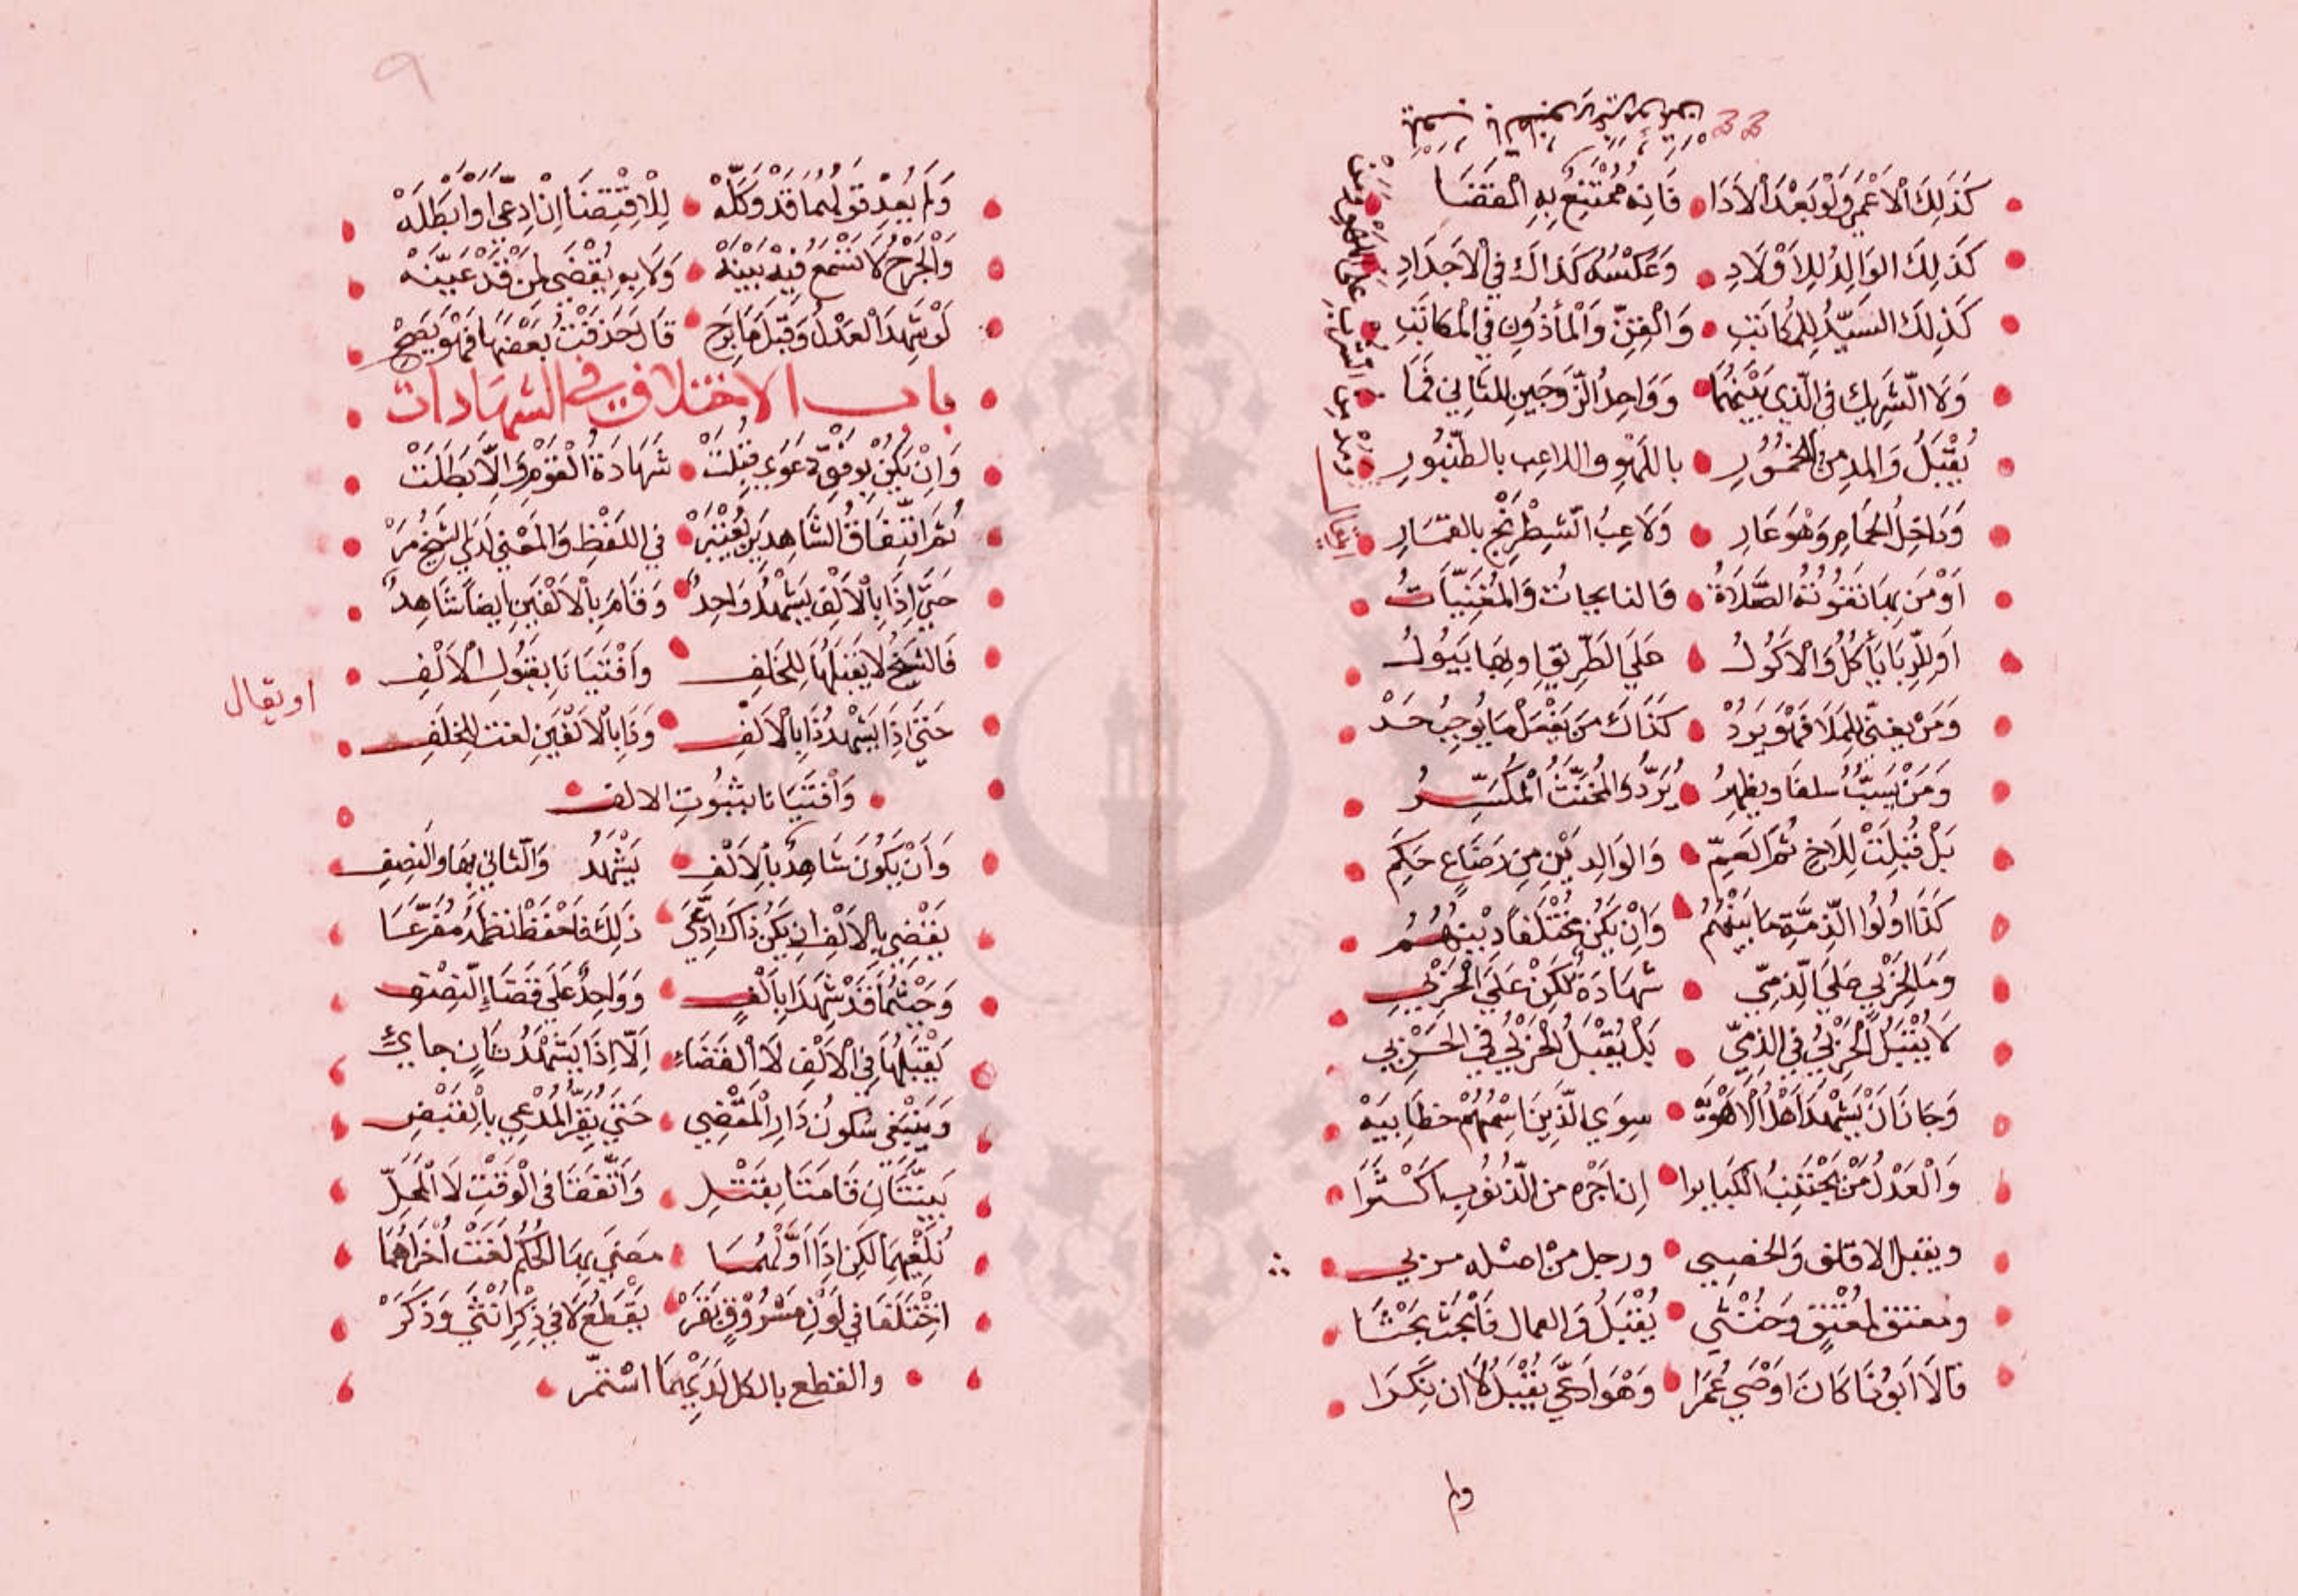 كَذَلِكَ الْاَعْمَى وَلَوْ بَعْدَ الْاَدَا فَاِنهُ مُمْتَنِعٌ بِهِ الْقَضَا
كَذَلِكَ الوَالِدُ لِلاَوْلَادِ وَعَكْسُهُ كَذَاكَ فِي الْاَجْدَادِ
كَذَلِكَ السَيِّدُ لِلمُكَاتَبِ وَالْقِنِّ وَالْمأذُونِ فِي الْمكَاتَبِ
وَلَا الشَّرِيكِ فِي الَّذِي بَيْنَهُمَا وَوَاحِدُ الزَّوجَينِ لِلثَانِي فَمَا
يُقْبَلُ وَالمدمِنُ الْخمُورِ باللَهْوِ واللاعِب بالطّنْبُورِ
وَدَاخِلُ الحَمامِ وَهْوَ عَارِ وَلَاعِبُ الشِطْرَنْجِ بالقمَارِ
اَوْ مَن بِهَا تَفُوتُهُ الصَّلَاةُ فَالنايحاتُ وَالمُغَنِيَّاتُ
اَو لِلرِّبَا يَأكُلُ وَالْاكُولُ عَلَي الطَّرِيقِ او بِهَا يَبُولُ
وَمَنْ يغنّي لِلمَلَا فَهْوَ يُرَدْ كَذَاكَ مَن يَفْعَلْ مَا يُوجِبُ حَدْ
وَمَنْ يَسُبُّ سلفًا ويظهِرُ يُرَدُّ وَالمُخنَّثُ الْمُكَسِّرُ
بَلْ قُبِلَتْ لِلاَخِ ثُمَّ العَمِّ وَالوَالِدَيْنِ مِن رَضَاعٍ حكِم
كَذَا اُولُوا الذِّمَّةِ مَا بَيْنَهُمُ وَاِنْ يَكُنْ مُخْتَلَفًا دِينُهُمُ
وَمَا لِحَرْبِيٍ عَلَي الذِّمِيِّ شَهَادَةٌ لَكِنْ عَلَي الْحَرْبِي
لَا يُقْبَلُ الحَرْبِيُّ فِي الذِمِيِّ بَلْ يُقْبَلُ الْحَرْبِيُّ فِي الحَرْبِي
وَجَازَ اَنْ يَشْهَدَ اَهْلُ الْاَهْوِيَهْ سِوَي الَّذِينَ اسْمُهُمْ خطَابِيَهْ
وَالْعَدْلُ مَنْ يَجْتَنِبُ الْكَبَايرا اِن اَجْرُه من الذُنُوبِ اَكْثَرَا
ويقبل الاقلف وَالخصِيي ورجل مِنْ اصْله
ومعتق لِمُعْتِقٍ وَخُنْثَي يُقْبَلُ وَالعمال فَابْحَثْ بَحْثَا
قَالَا اَبُونَا كَانَ اَوْصَي عُمَرَا وَهْوَ ادَّعَي يُقْبَلُ لَا ان نكَرَا
ولم
وَلَم يُعِدْ قَولَهُمَا قَدْ وَكَّلَهْ لِلْاِقْتِضَا اِنْ اِدعّى اَوْ اَبْطَلَهْ
وَالْجَرْحُ لَا تَسْمَعُ فِيهِ بَيّنَهْ وَلَا بِهِ يُقْضَي لِمَنْ قَدْ عَيَّنَهْ
لَوْ شَهِدَ الْعَدْلُ وَقَبْلَ مَا بَرِح قَالَ حَذَفْتُ بَعْضَهَا فَهْوَ يَصِحْ
باب الاختلاف في الشهادات
وَاِنْ يَكُنْ يُوَفِّقْ دَعْوي قُبِلَتْ شَهَادَةُ الْقَوْمِ وَاِلَّا بَطَلَتْ
ثُمَّ اتِّفَاقُ الشَّاهِدَينِ يُعْتَبَرْ فِي اللفْظِ وَالمَعْنِي لَدَي الشَّيْخِ مَرّ
حَتَّي اِذَا بِالْاَلْفِ يَشْهَدُ وَاحِدُ وَقَامَ بِالْاَلْفَينِ اَيضًا شَاهِدُ
فَالشَيْخُ لَا يَقبَلُهَا لِلخَلفِ وَاَفْتَيَانَا بِقبُولِ الْاَلْفِ
حَتَّي اِذَا يَشْهَدُ ذَا بِالْاَلْفِ وَذَا بِالْاَلْفَينِ لغت لِلخلفِ
او يقال
وَاَفْتَيَانَا بثبُوتِ الالف
وَاَنْ يَكُونَ شَاهِدٌ بِالْاَلْفِ يَشْهَدُ وَالثَانِي بِهَا والنصِفِ
يَقْضِي بِالْاَلْفِ اِن يَكُنْ ذَاكَ ادَّعَي ذَلِكَ فَاحْفَظْ نظمَهُ مُفَرّعَا
وَحَيْثُمَا قَدْ شَهِدَا بِاَلْفٍ وَوَاحِدٌ عَلَي قَضَا النِصْفِ
يَقْبَلُهَا فِي الْاَلْفِ لَا الْقَضَاءِ اِلَّا اِذَا يَشْهَدُ ثَانٍ جايْ
وَيَنْبَغِي سُكُوتُ دَارِ الْمَقْضِي حَتَّي يُقِرَّ المُدْعِي بِالْقَبْضِ
بَيّنَتَانِ قَامَتَا بِقَتْلِ وَاَتَّفَقَا فِي الْوَقْتِ لَا الْمَحَلّ
نُلْغِيهِمَا لَكِن اِذَا اُوْلَهُمَا مَضَي بِهَا الحُكْمُ لَغَتْ اُخْرَاهُمَا
اخْتَلَفَا فِي لَوْنِ مَسْرُوقٍ بَقَرْ يَقْطَعُ لَا فِي ذِكْرِ اُنْثَي وَذَكَرْ
والقطع بالكل لَدَيْهِمَا اسْتَمّر